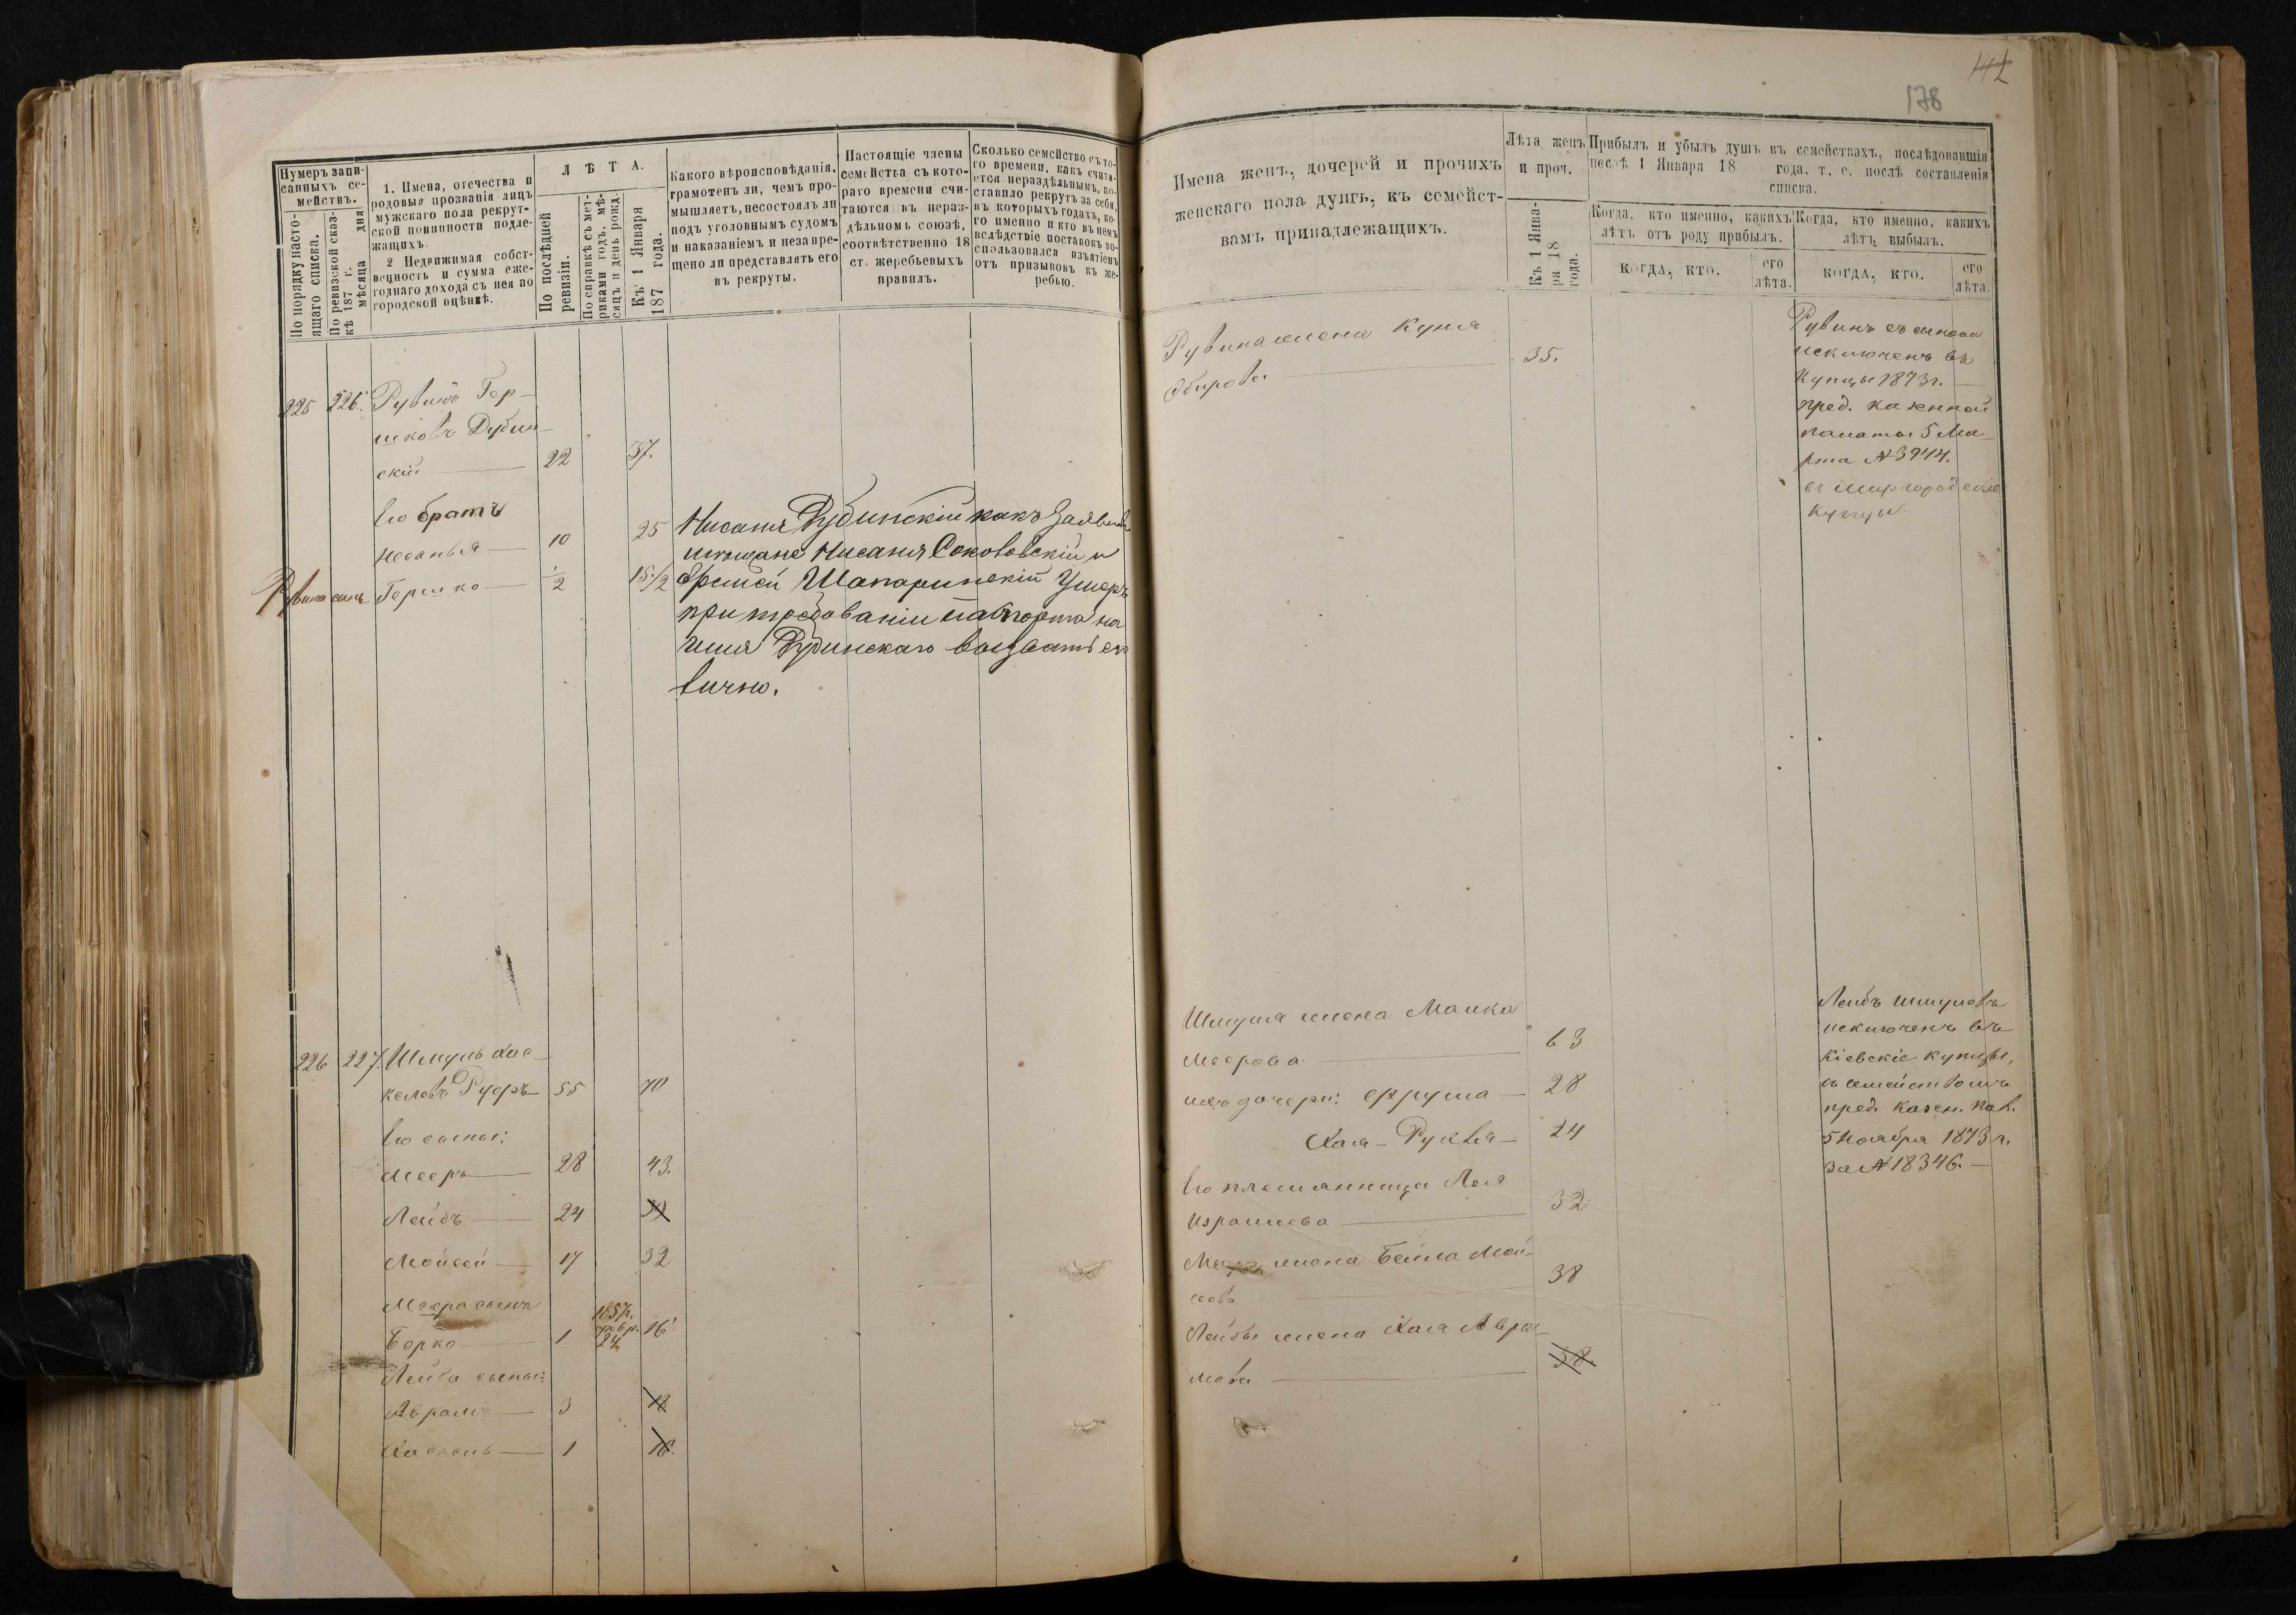 42
178
Нумеръ запи-
санныхъ се-
мействъ.
По порядку насто-
ящаго списка.
По ревизской сказ-
кѣ 187 г.
мѣсяца дня
1. Имена, отечества и
родовыя прозванія лицъ
мужскаго пола рекрут-
ской повинности подле-
жащихъ.
2 Недвижимая собст-
венность и сумма еже-
годнаго дохода съ нея по
городской оцѣнкѣ.
ЛѢТА.
По послѣдней
ревизіи.
По справкѣ съ мет-
риками годъ, мѣ-
сяцъ и день рожд.
Къ 1 Января
187 года.
Какого вѣроисповѣданія,
грамотенъ ли, чѣмъ про-
мышляетъ, несостоялъ ли
подъ уголовнымъ судомъ
и наказаніемъ и незапре-
щено ли представлять его
въ рекруты.
Настоящіе члены
семейства съ кото-
раго времени счи-
таются въ нераз-
дѣльномъ союзѣ,
соотвѣтственно 18
ст. жеребьевыхъ
правилъ.
Сколько семейство съ то-
го времени, какъ счита-
ется нераздѣльнымъ, по-
ставило рекрутъ за себя,
въ которыхъ годахъ, ко-
го именно и кто въ немъ
вслѣдствіе поставокъ во-
спользовался изъятіемъ
отъ призывовъ къ же-
ребью.
225 226. Рувинъ Гер-
шковъ Дубин-
скій 22 37.
Его братъ
Несанья 10 25
Рувина сынъ Гершко 1/2 15 1/2
Нисанъ Дубинскій какъ заявили
мѣщане Нисанъ Соковскій и
Шапаринскій умеръ
при требованіи паспорта на
имя Дубинскаго вызвать его
лично.
226 227. Шмуль Хас-
келевъ Руеръ 55 70
Его сыны:
Мееръ 28 43.
Лейбъ 24 39
Мойсей 17 32
Меера сынъ
Берко 1 1857. февр. 24 16.
Лейба сыны:
Абрамъ 3 18
Хаскель 1 16.
Имена женъ, дочерей и прочихъ
женскаго пола душъ, къ семейст-
вамъ принадлежащихъ.
Лѣта женъ
и проч.
Къ 1 Янва-
ря 18
года.
Прибылъ и убылъ душъ въ семействахъ, послѣдовавшія
послѣ 1 Января 18 года, т. е. послѣ составленія
списка.
Когда, кто именно, какихъ
лѣтъ отъ роду прибылъ.
КОГДА, КТО.
его
лѣта.
Когда, кто именно, какихъ
лѣтъ выбылъ.
КОГДА, КТО.
его
лѣта.
Рувина жена Куня
35.
Рувинъ съ сыномъ
исключенъ въ
купцы 1873 г.
пред. казенной
палаты 5 Ма-
рта № 3944.
въ Миргородскіе
купцы
Шмуля жена Малка
Меерова 63
ихъ дочери: Фрума 28
Хая-Рухля 24
Его племянница Лея
Израилева 32
жена Бейла Мой-
сеева 38
Лейбы жена Хая Абра-
мова 38.
Лейбъ Шмулевъ
исключенъ въ
Кіевскіе купцы,
съ семействомъ
пред. Казен. Пал.
5 Ноября 1873 г.
за № 18346.